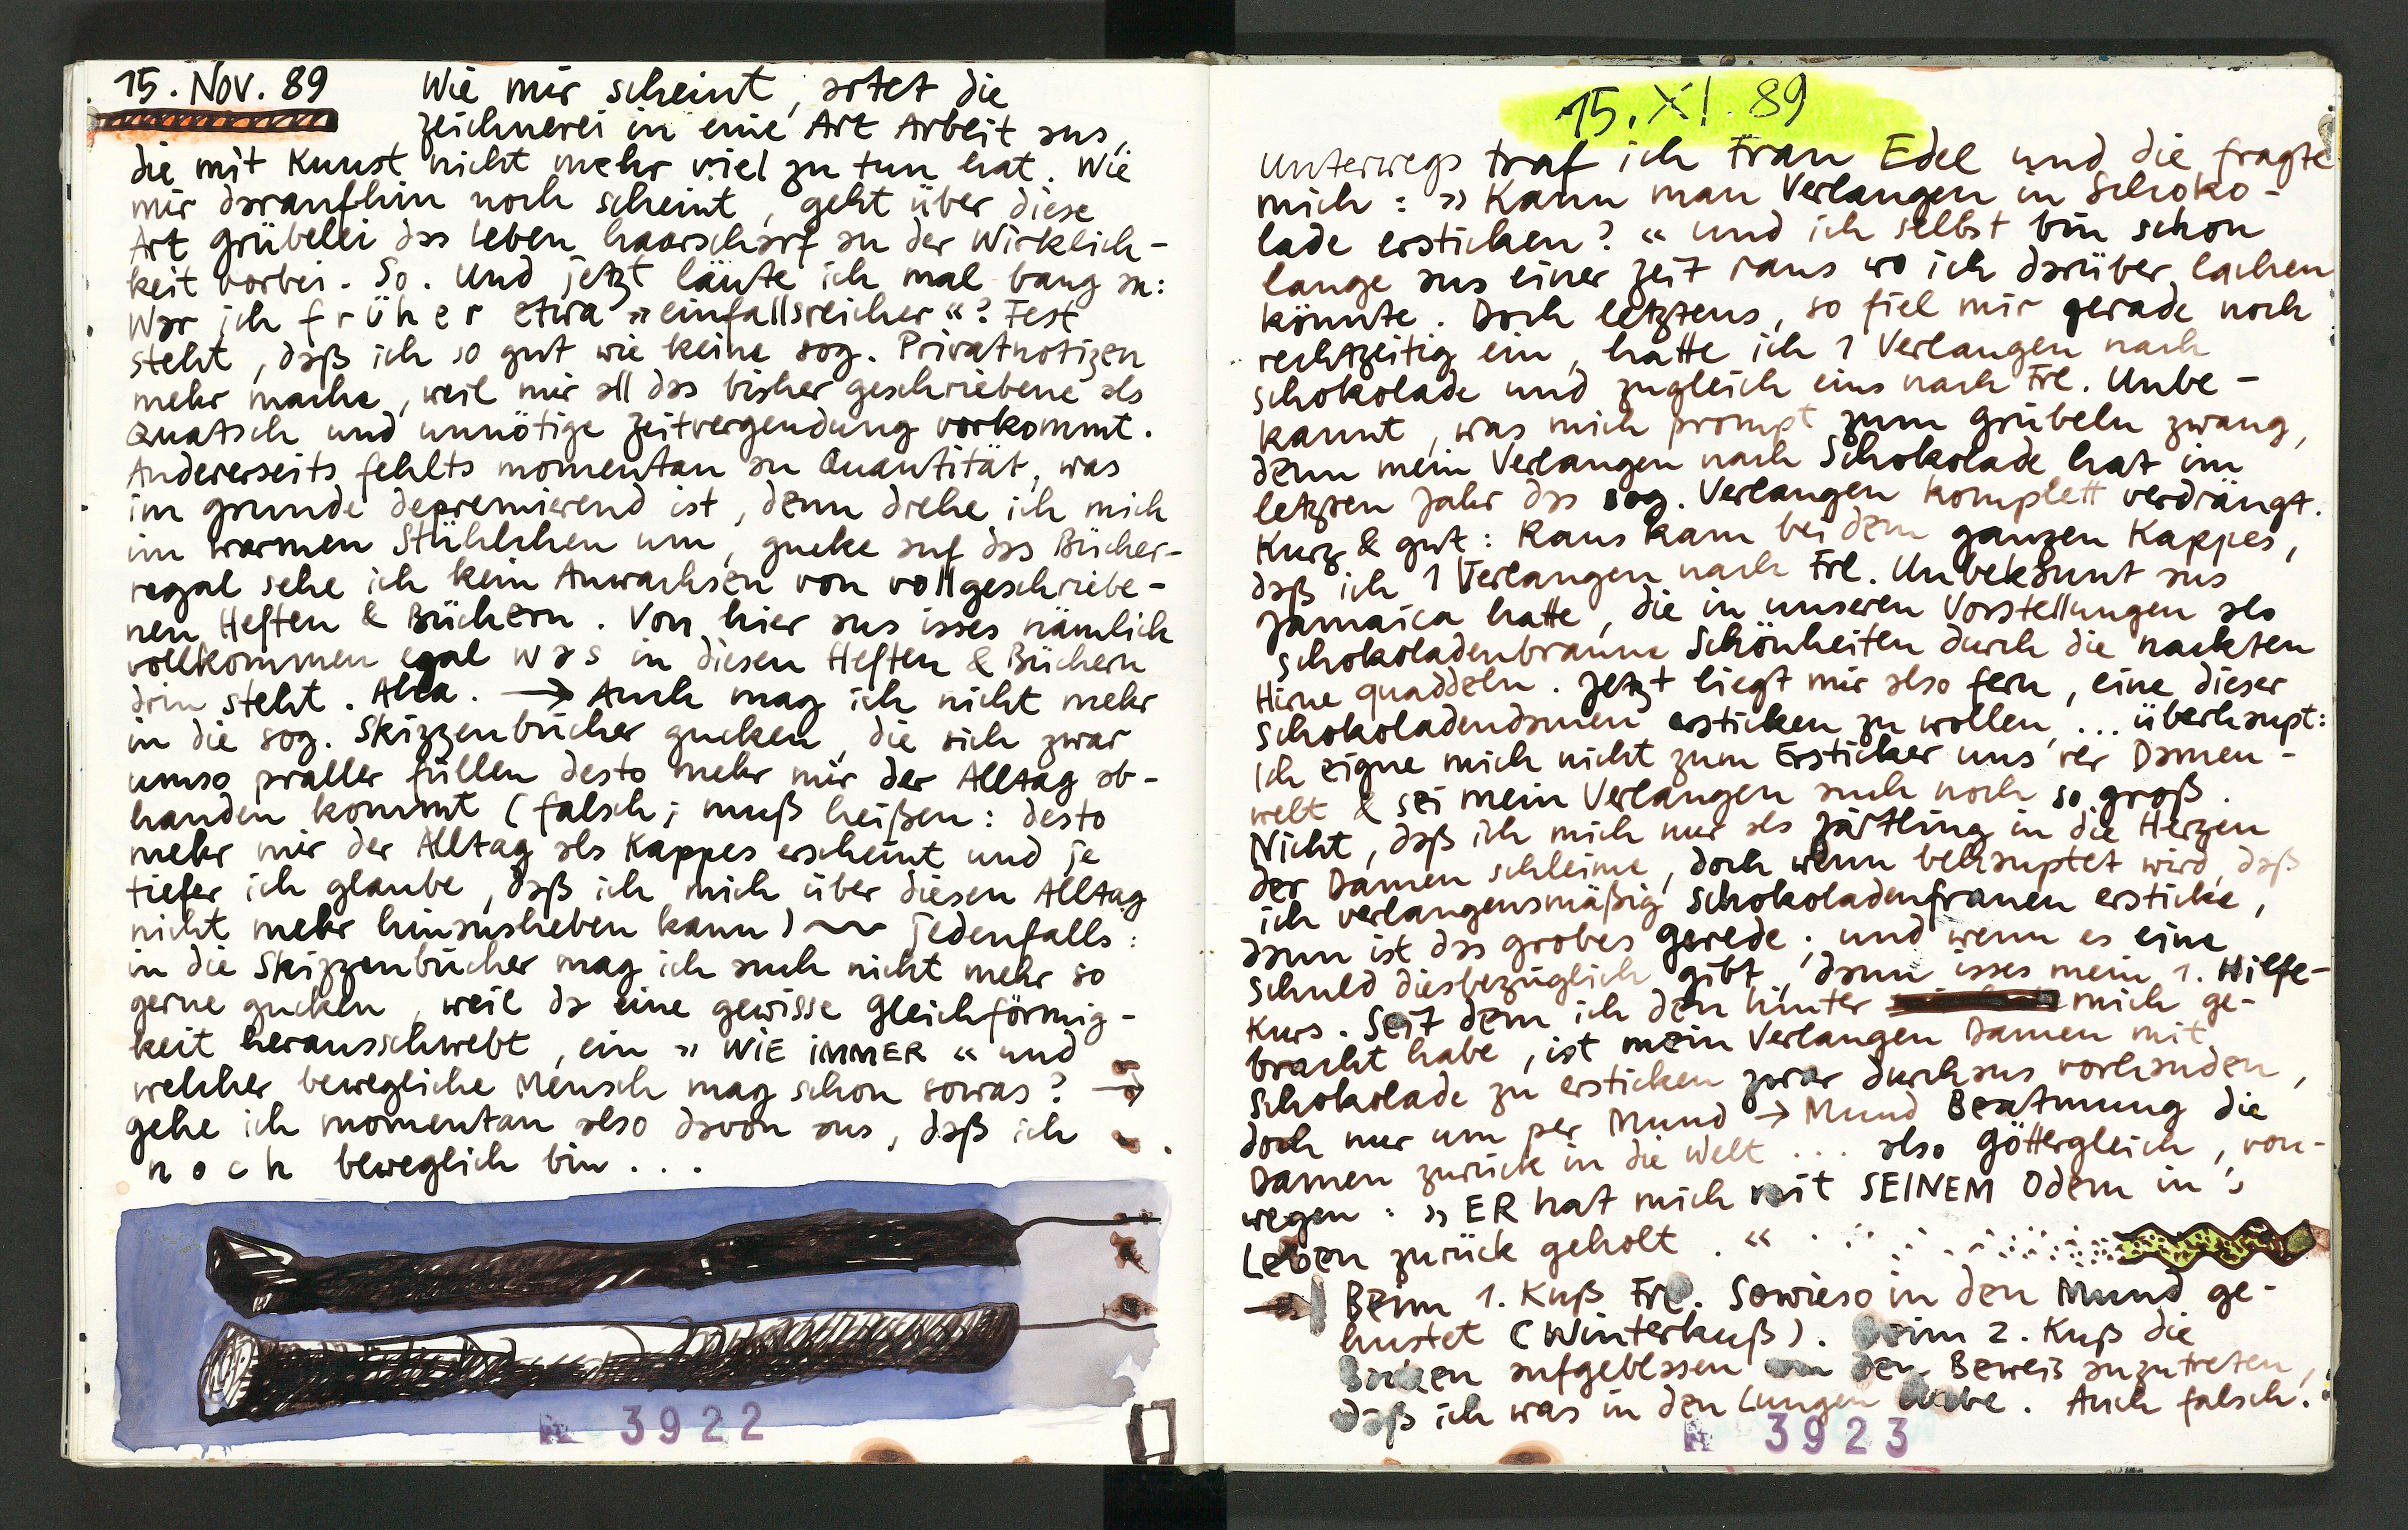 15. Nov. 89
Wie mir scheint, artet die
Zeichnerei in eine Art Arbeit aus,
die mit Kunst nicht mehr viel zu tun hat. Wie
mir daraufhin noch scheint, geht über diese
Art Grübelei das Leben haarscharf an der Wirklich-
keit vorbei. So. Und jetzt läute ich mal bang an:
War ich früher etwa »einfallsreicher«? Fest
steht, daß ich so gut wie keine sog. Privatnotizen
mehr mache, weil mir all das bisher geschriebene als
Quatsch und unnötige Zeitvergendung vorkommt.
Andererseits fehlts momentan an Quantität, was
im Grunde depremierend ist, denn drehe ich mich
im warmen Stühlchen um, gucke auf das Bücher-
regal sehe ich kein Anwachsen von vollgeschriebe-
nen Heften & Büchern. Von hier aus isses nämlich
vollkommen egal was in diesen Heften & Büchern
drin steht. Alta. → Auch mag ich nicht mehr
in die sog. Skizzenbücher gucken, die sich zwar
umso praller füllen desto mehr mir der Alltag ab-
handen kommt (falsch; muß heißen: desto
mehr mir der Alltag als Kappes erscheint und je
tiefer ich glaube, daß ich mich über diesen Alltag
nicht mehr hinausheben kann) ~ jedenfalls:
in die Skizzenbücher mag ich auch nicht mehr so
gerne gucken, weil da eine gewisse Gleichförmig-
keit herausschwebt, ein »WIE IMMER« und
welcher bewegliche Mensch mag schon sowas? →
gehe ich momentan also davon aus, daß ich
noch beweglich bin...
3922
15. XI. 89
Unterwegs traf ich Frau Edel und die fragte
mich: »Kann man Verlangen in Schoko-
lade ersticken?« und ich selbst bin schon
lange aus einer Zeit raus wo ich darüber lachen
könnte. Doch letztens, so fiel mir gerade noch
rechtzeitig ein, hatte ich 1 Verlangen nach
Schokolade und zugleich eins nach Frl. Unbe-
kannt, was mich prompt zum Grübeln zwang,
denn mein Verlangen nach Schokolade hat im
letzten Jahr das sog. Verlangen komplett verdrängt.
Kurz & gut: Raus kam bei dem ganzen Kappes,
daß ich 1 Verlangen nach Frl. Unbekannt aus
Jamaica hatte, die in unseren Vorstellungen als
schokoladenbraune Schönheiten durch die nackten
Hirne quaddeln. Jetzt liegt mir also fern, eine dieser
Schokoladendamen ersticken zu wollen, ... überhaupt:
Ich eigne mich nicht zum Ersticker uns'rer Damen-
welt & sei mein Verlangen auch noch so groß.
Nicht, daß ich mich nur als Zärtling in die Herzen
der Damen schleime, doch wenn behauptet wird, daß
ich verlangensmäßig Schokoladenfrauen ersticke,
dann ist das grobes Gerede. und wenn es eine
Schuld diesbezüglich gibt, dann isses mein 1. Hilfe-
Kurs. Seit dem ich den hinter mich ge-
bracht habe, ist mein Verlangen Damen mit
Schokolade zu ersticken zwar durchaus vorhanden,
doch nur um per Mund → Mund Beatmung die
Damen zurück in die Welt ... also göttergleich, von-
wegen: »ER hat mich mit SEINEM Odem in's
Leben zurück geholt.«
→ Beim 1. Kuß Frl. Sowieso in den Mund ge-
hustet (Winterkuß). Beim 2. Kuß die
Backen aufgeblasen um den Beweis anzutreten,
daß ich was in den Lungen habe. Auch falsch.
3923